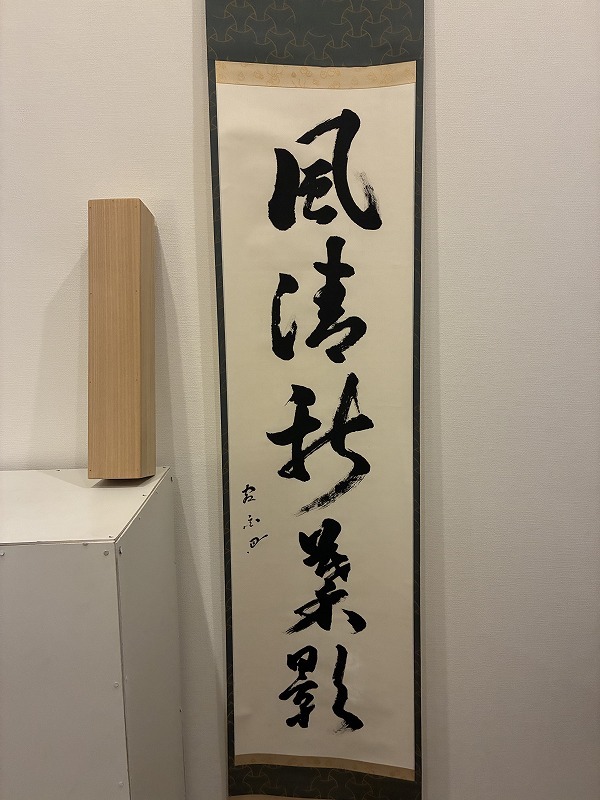 風清新葉影